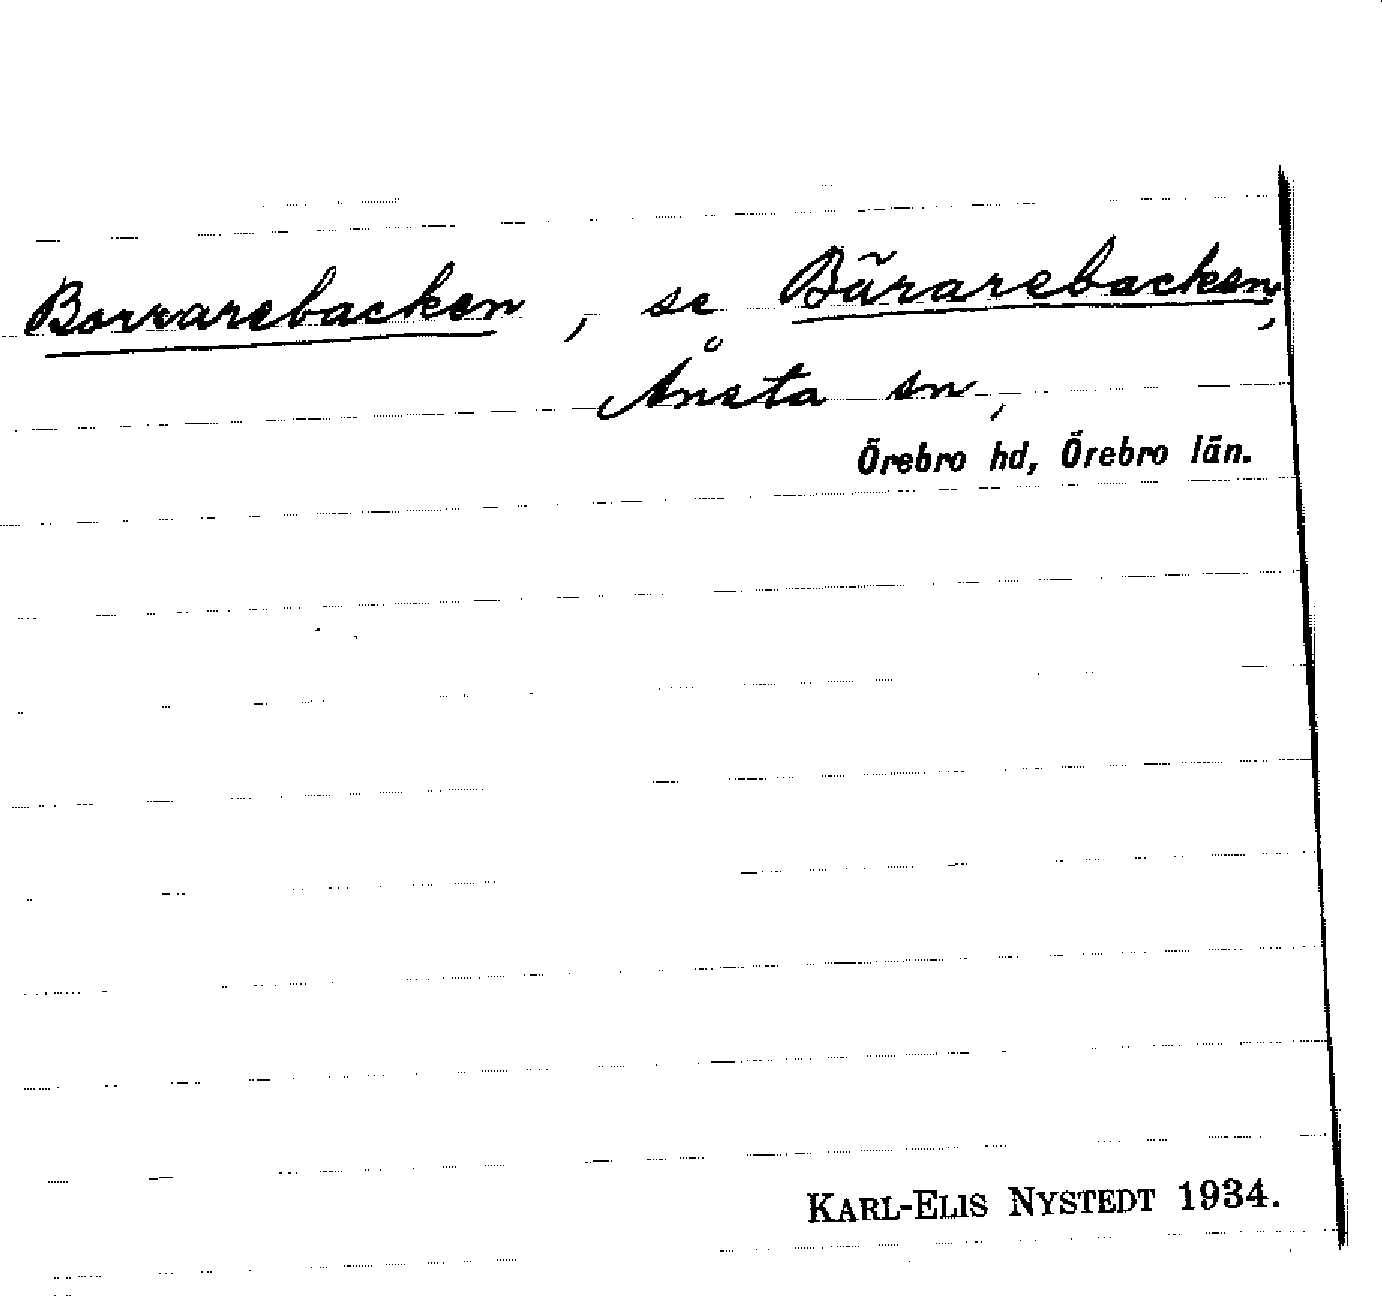 Borrarebacken, se Bärarebacken,
Ånsta sn,
Örebro hd, Örebro län.
KARL-ELIS NYSTEDT 1934.